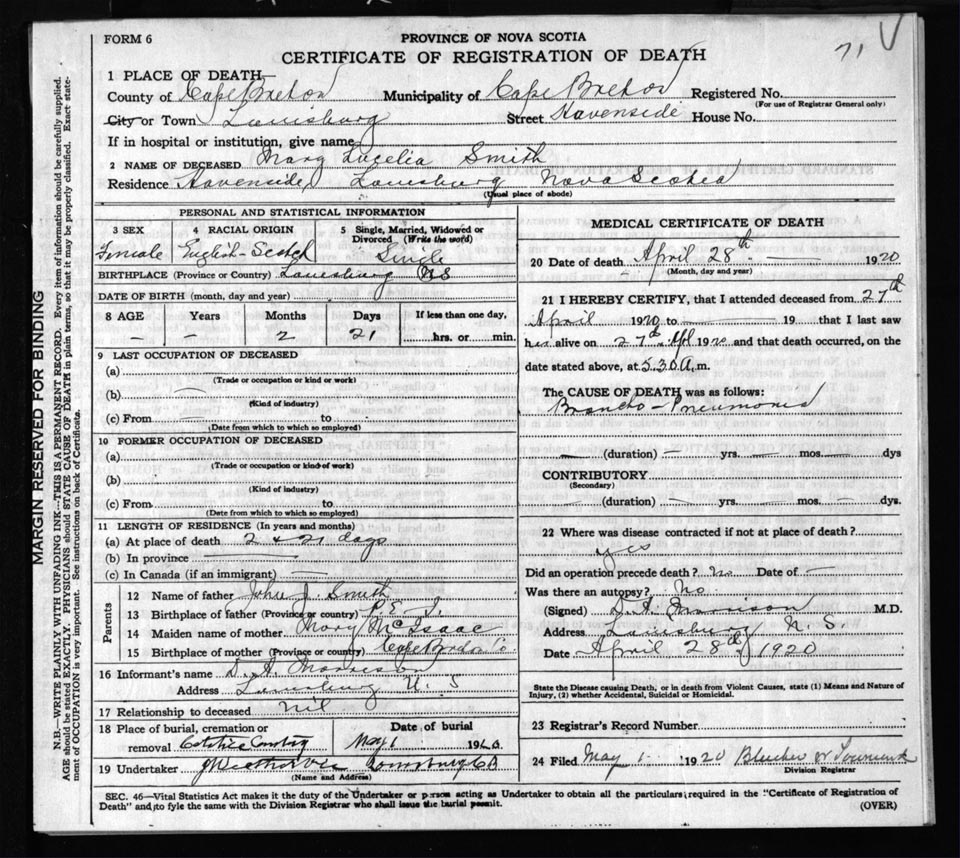 FORM 6
PROVINCE OF NOVA SCOTIA
CERTIFICATE OF REGISTRATION OF DEATH
71
1 PLACE OF DEATH—
County of Cape Breton Municipality of Cape Breton Registered No.
(For use of Registrar General only)
City or Town Louisburg Street Havenside House No.
If in hospital or institution, give name
2 NAME OF DECEASED Mary Lucelia Smith
Residence Havenside Louisburg Nova Scotia
(Usual place of abode)
PERSONAL AND STATISTICAL INFORMATION
3 SEX 4 RACIAL ORIGIN 5 Single, Married, Widowed or Divorced (Write the word)
Female English-Scotch Single
BIRTHPLACE (Province or Country) Louisburg NS
DATE OF BIRTH (month, day and year)
8 AGE Years Months Days If less than one day,
— — 2 21 hrs. or min.
9 LAST OCCUPATION OF DECEASED
(a)
(Trade or occupation or kind or work)
(b) —
(Kind of industry)
(c) From to
(Date from which to which so employed)
10 FORMER OCCUPATION OF DECEASED
(a)
(Trade or occupation or kind of work)
(b)
(Kind of industry)
(c) From to
(Date from which to which so employed)
11 LENGTH OF RESIDENCE (In years and months)
(a) At place of death 2 & 21 days
(b) In province —
(c) In Canada (if an immigrant) —
Parents
12 Name of father John J. Smith
13 Birthplace of father (Province or country) P.E.I.
14 Maiden name of mother Mary McIsaac
15 Birthplace of mother (Province or country) Cape Breton Co.
16 Informant's name D. A. Morrison
Address Louisburg N. S
17 Relationship to deceased nil
18 Place of burial, cremation or removal Date of burial
May 1 1920
19 Undertaker Louisburg CB
(Name and Address)
MEDICAL CERTIFICATE OF DEATH
20 Date of death April 28th — 1920
(Month, day and year)
21 I HEREBY CERTIFY, that I attended deceased from 27th
April 1920 to — 19 — that I last saw
her alive on 27th Apl 1920 and that death occurred, on the
date stated above, at 5.30 A.m.
The CAUSE OF DEATH was as follows:
Broncho-Pneumonia
— (duration) — yrs. — mos. — dys
CONTRIBUTORY
(Secondary)
(duration) — yrs. — mos. — dys.
22 Where was disease contracted if not at place of death?
yes
Did an operation precede death? No Date of —
Was there an autopsy? No.
(Signed) D. A. Morrison M.D.
Address Louisburg N. S.
Date April 28th 1920
State the Disease causing Death, or in death from Violent Causes, state (1) Means and Nature of
Injury, (2) whether Accidental, Suicidal or Homicidal.
23 Registrar's Record Number
24 Filed May 1 1920
Division Registrar
SEC. 46—Vital Statistics Act makes it the duty of the Undertaker or person acting as Undertaker to obtain all the particulars required in the "Certificate of Registration of
Death" and to fyle the same with the Division Registrar who shall issue the burial permit.
(OVER)
MARGIN RESERVED FOR BINDING
N.B.—WRITE PLAINLY WITH UNFADING INK—THIS IS A PERMANENT RECORD. Every item of information should be carefully supplied.
AGE should be stated EXACTLY. PHYSICIANS should STATE CAUSE OF DEATH in plain terms, so that it may be properly classified. Exact state-
ment of OCCUPATION is very important. See instructions on back of Certificate.